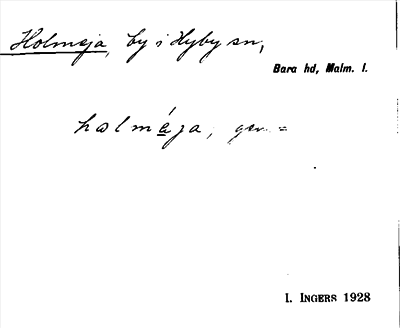 Holmeja, by i Hyby sn,
Bara hd, Malm. l.
hɷlmása, gen. =
I. INGERS 1928